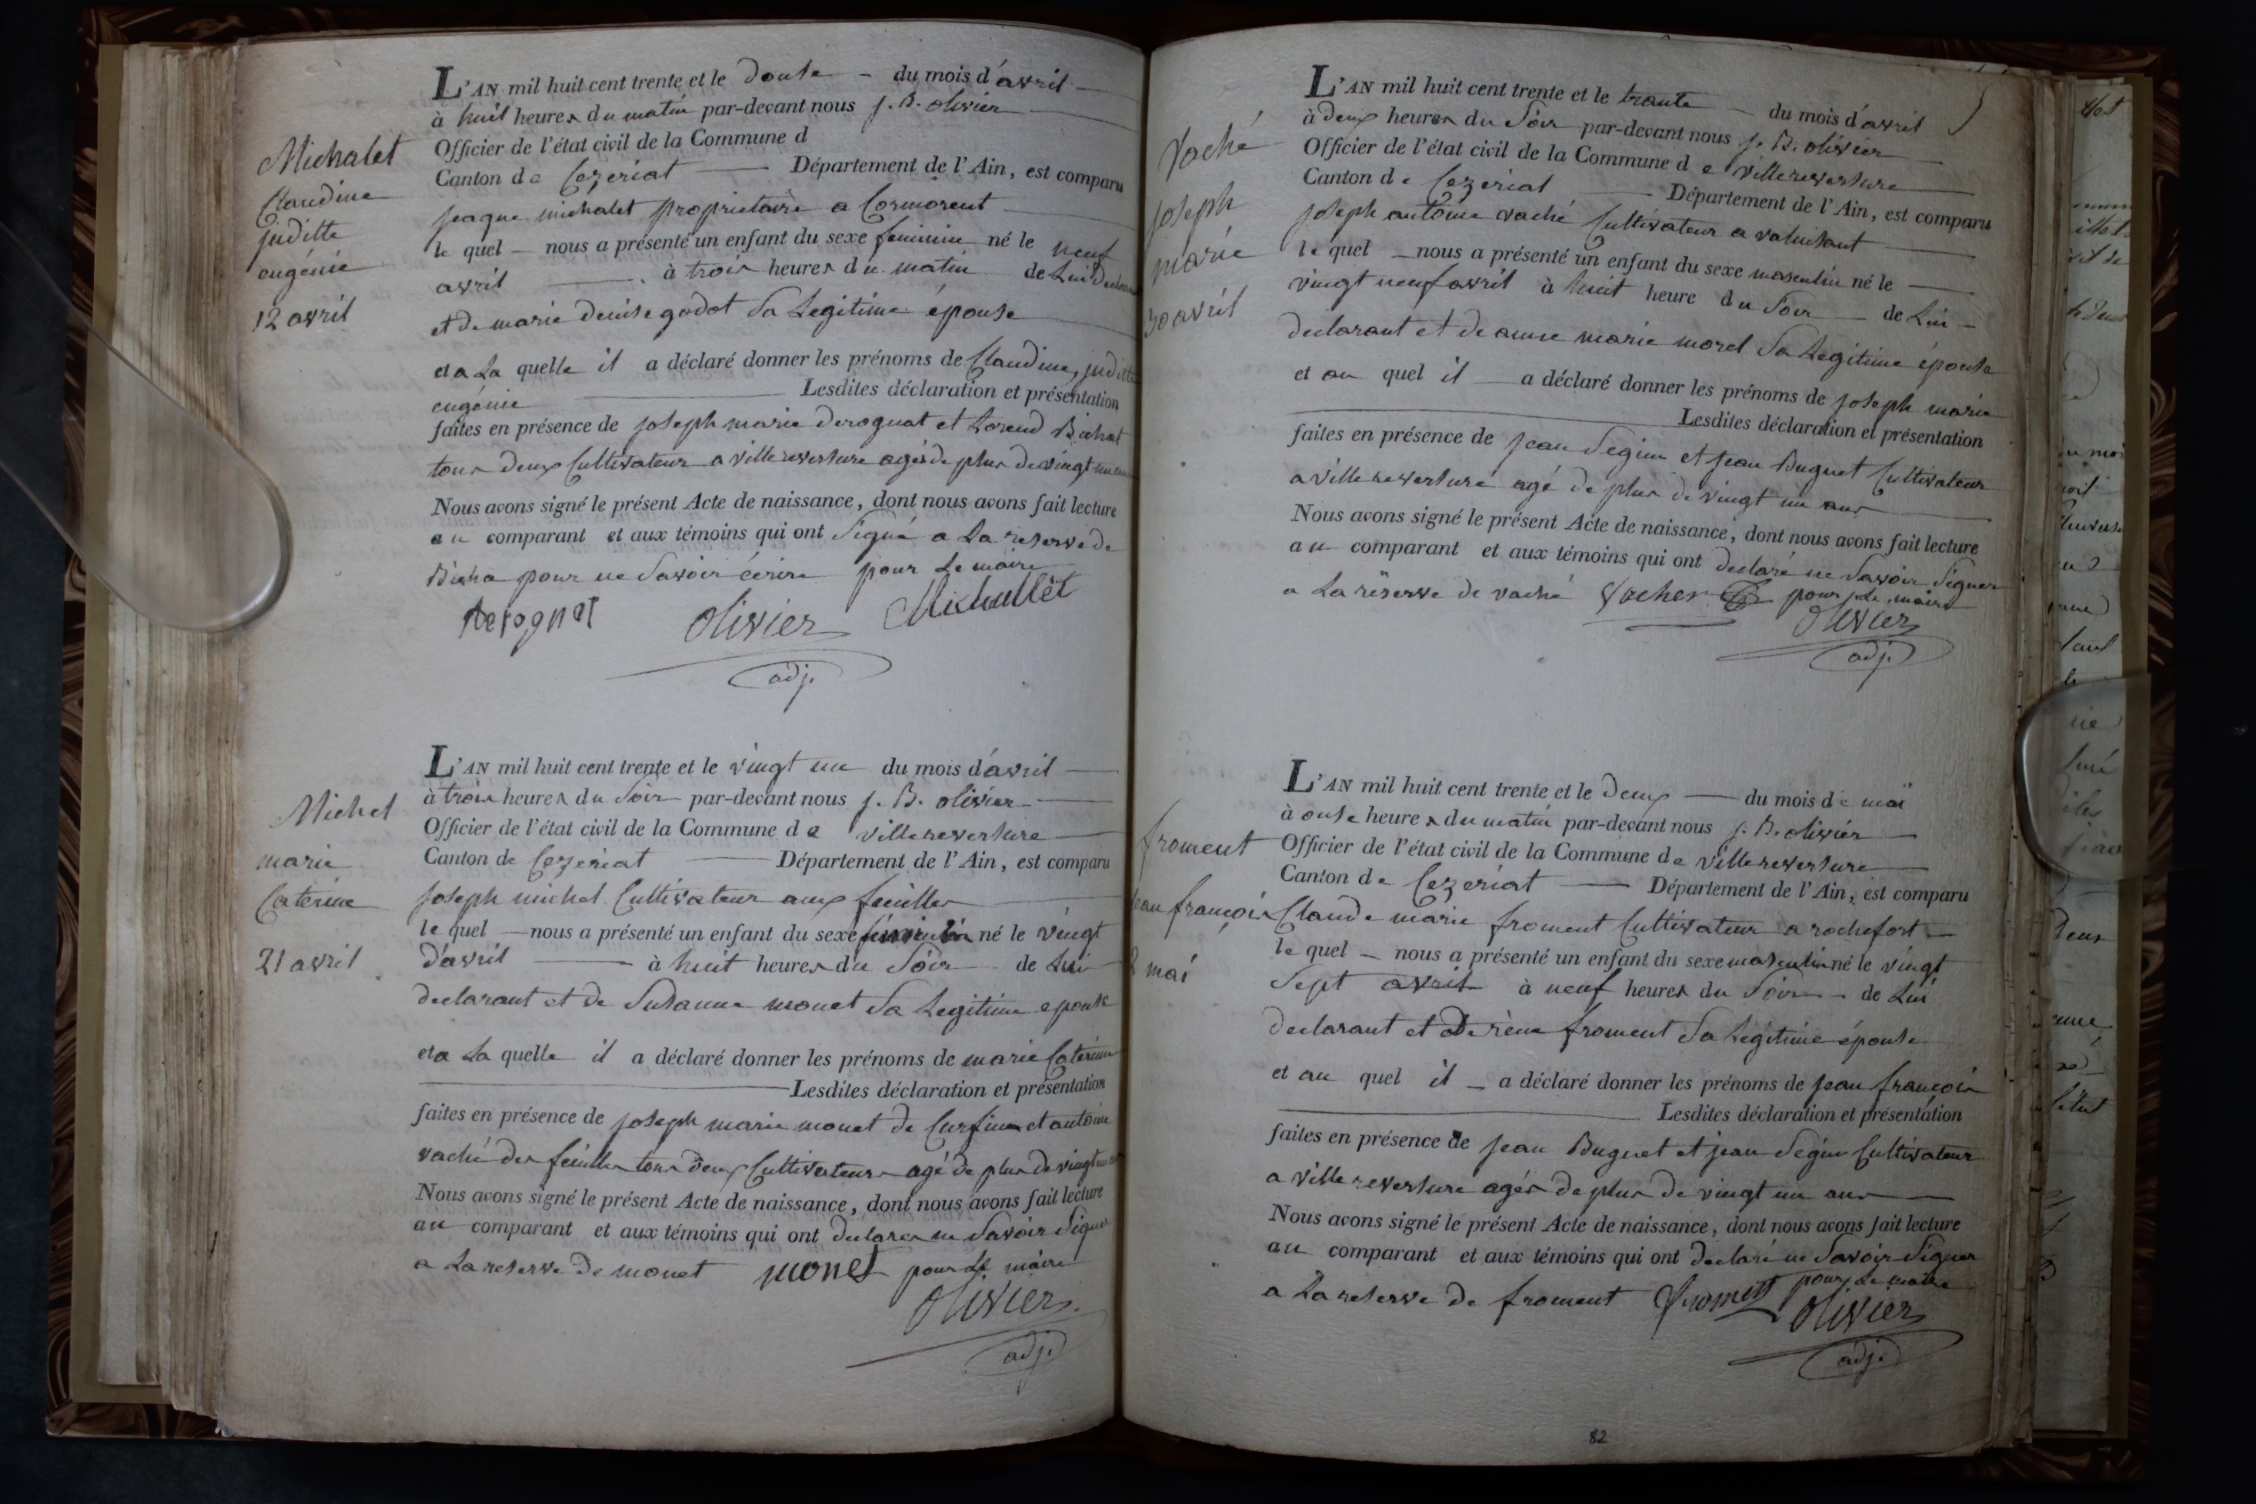 Michalet
Claudine
juditte
eugénie
12 avril
L'AN mil huit cent trente et le douse - du mois d'avril
à huit heures du matin par-devant nous j. B. olivier
Officier de l'état civil de la Commune d
Canton de Cezeriat Département de l'Ain, est comparu
jaque michalet proprietaire a Cormorent
le quel nous a présenté un enfant du sexe feminin né le neuf
avril à trois heures du matin de Lui declarant
et de marie denise godot Sa Legitime épouse
et a La quelle il a déclaré donner les prénoms de Claudine, juditte
eugénie Lesdites déclaration et présentation
faites en présence de joseph marie derognat et Lorend Bichat
tous deux Cultivateur a villereversure agés de plus de vingt un ans
Nous avons signé le présent Acte de naissance, dont nous avons fait lecture
au comparant et aux témoins qui ont Signé a La reserve de
Bicha pour ne Savoir écrire pour Le maire
derognat olivier Michallet
adj.
Michel
marie
Caterine
21 avril
L'AN mil huit cent trente et le vingt un du mois d'avril
à trois heures du Soir par-devant nous j. B. olivier
Officier de l'état civil de la Commune de villereversure
Canton de Cezeriat Département de l'Ain, est comparu
joseph michel Cultivateur aux feuilles
le quel nous a présenté un enfant du sexe féminin né le vingt
d'avril à huit heures du Soir de Lui
declarant et de Susanne monet Sa Legitime epouse
et a La quelle il a déclaré donner les prénoms de marie Caterine
Lesdites déclaration et présentation
faites en présence de joseph marie monet de et antoine
vaché des feuilles tous deux Cultivateurs agé de plus de vingt un ans
Nous avons signé le présent Acte de naissance, dont nous avons fait lecture
au comparant et aux témoins qui ont declarer ne Savoir Signer
a La reserve de monet monet pour Le maire
olivier
adj.
Vaché
joseph
marie
30 avril
L'AN mil huit cent trente et le trante du mois d'avril
à deux heures du Soir par-devant nous j. B. olivier
Officier de l'état civil de la Commune de villereversure
Canton de Cezeriat Département de l'Ain, est comparu
joseph antoine vaché Cultivateur a
le quel nous a présenté un enfant du sexe masculin né le
vingt neuf avril à huit heure du Soir de Lui
declarant et de anne marie morel Sa Legitime épouse
et au quel il a déclaré donner les prénoms de joseph marie
Lesdites déclaration et présentation
faites en présence de jean Segin et jean Buguet Cultivateur
a villereversure agé de plus de vingt un ans
Nous avons signé le présent Acte de naissance, dont nous avons fait lecture
au comparant et aux témoins qui ont declaré ne Savoir Signer
a La rëserve de vaché Vacher pour Le maire
olivier
adj.
froment
jean françois
2 mai
L'AN mil huit cent trente et le deux du mois de mai
à onse heures du matin par-devant nous j. B. olivier
Officier de l'état civil de la Commune de villereversure
Canton de Cezeriat Département de l'Ain, est comparu
Claude marie froment Cultivateur a rochefort
le quel nous a présenté un enfant du sexe masculin né le vingt
Sept avril à neuf heures du Soir de Lui
declarant et De rène froment Sa Légitime épouse
et au quel il a déclaré donner les prénoms de jean françois
Lesdites déclaration et présentation
faites en présence de jean Buguet et jean Segin Cultivateur
a villereversure agés de plus de vingt un ans
Nous avons signé le présent Acte de naissance, dont nous avons fait lecture
au comparant et aux témoins qui ont declaré ne Savoir Signer
a La reserve de froment froment pour Le maire
olivier
adj.
82